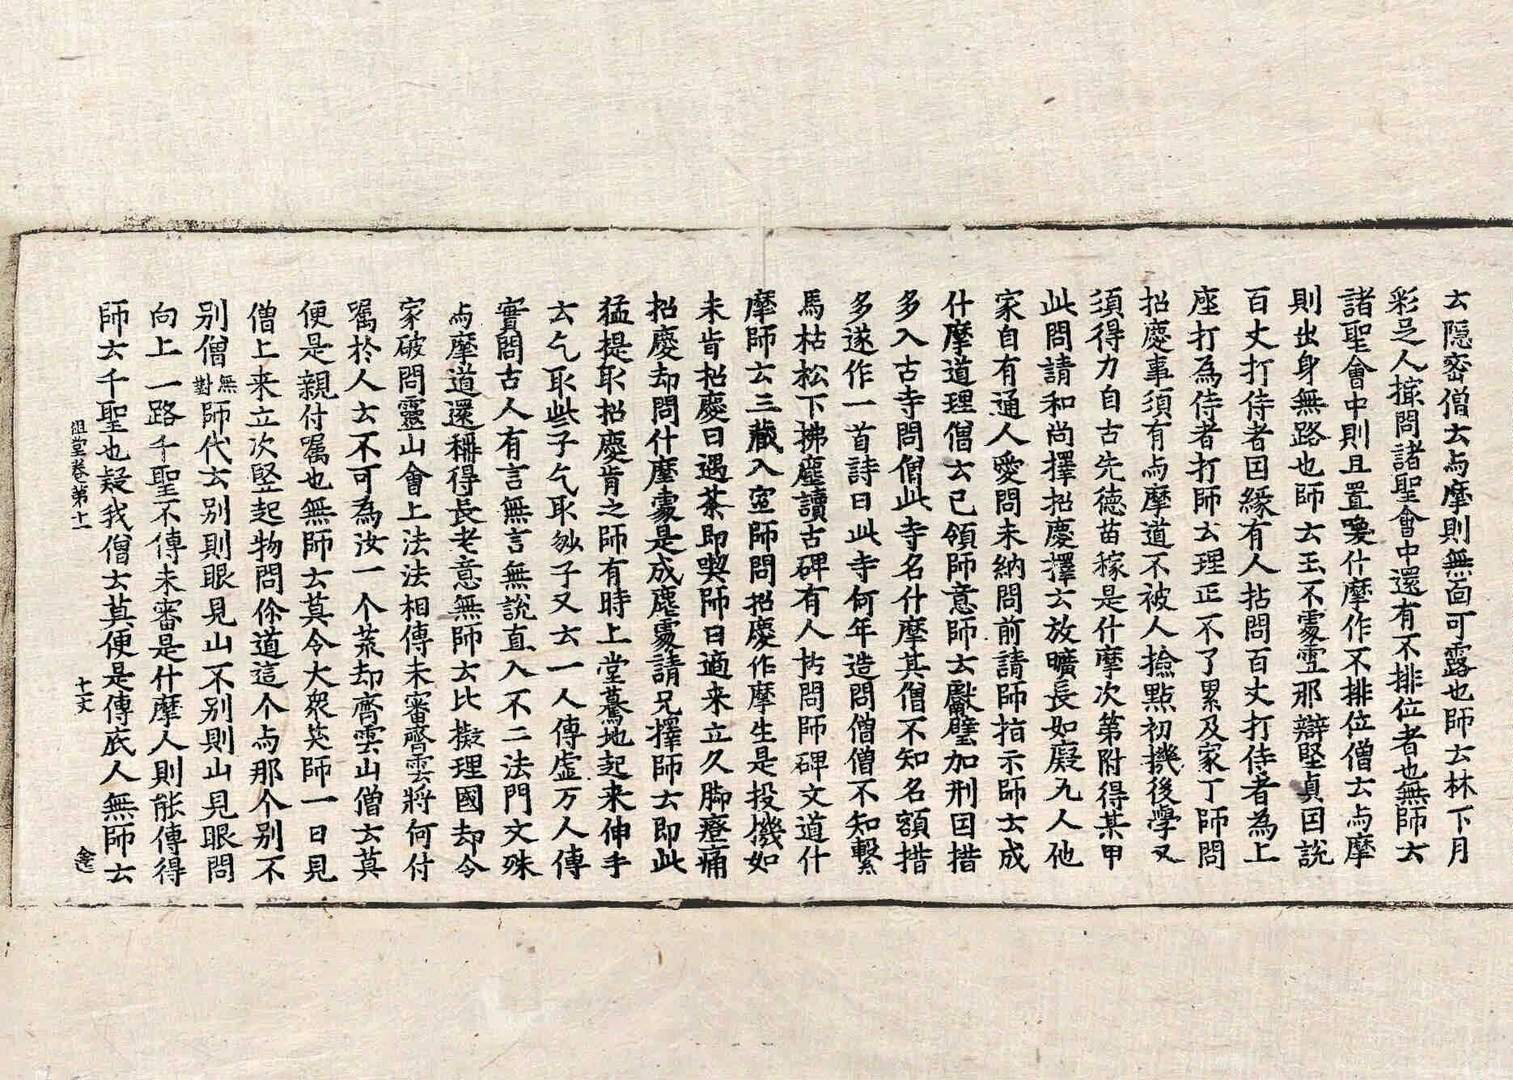 云隱密僧云与摩則無面可露也師云林下月
彩足人㨿問諸聖會中還有不排位者也無師云
諸聖會中則且置喚什摩作不排位僧云与摩
則出身無路也師云玉不處雪那辯堅貞因說
百丈打侍者因緣有人拈問百丈打侍者為上
座打為侍者打師云理正不了累及家丁師問
招慶事須有与摩道不被人撿點初機後學又
須得力自古先德苗稼是什摩次第附得某甲
此問請和尚擇招慶擇云放曠長如癡兀人他
家自有通人愛問未納問前請師指示師云成
什摩道理僧云已領師意師云獻璧加刑因措
多入古寺問僧此寺名什摩其僧不知名額措
多遂作一首詩曰此寺何年造問僧僧不知繫
馬枯松下拂塵讀古碑有人拈問師碑文道什
摩師云三藏入室師問招慶作摩生是投機如
未肯招慶曰遇茶即喫師曰適来立久脚㾾痛
招慶却問什摩處是成塵處請兄擇師云即此
猛提取招慶肯之師有時上堂驀地起来伸手
云乞取些子乞取些子又云一人傳虛万人傳
實問古人有言無言無說直入不二法門文殊
与摩道還稱得長老意無師云比擬理國却令
家破問靈山會上法法相傳未審齊雲將何付
囑於人云不可為汝一个荒却齊雲山僧云莫
便是親付囑也無師云莫令大衆笑師一日見
僧上来立次竪起物問你道這个与那个別不
別僧無對師代云別則眼見山不別則山見眼問
向上一路千聖不傳未審是什摩人則能傳得
師云千聖也疑我僧云莫便是傳底人無師云
祖堂卷第十一　十丈